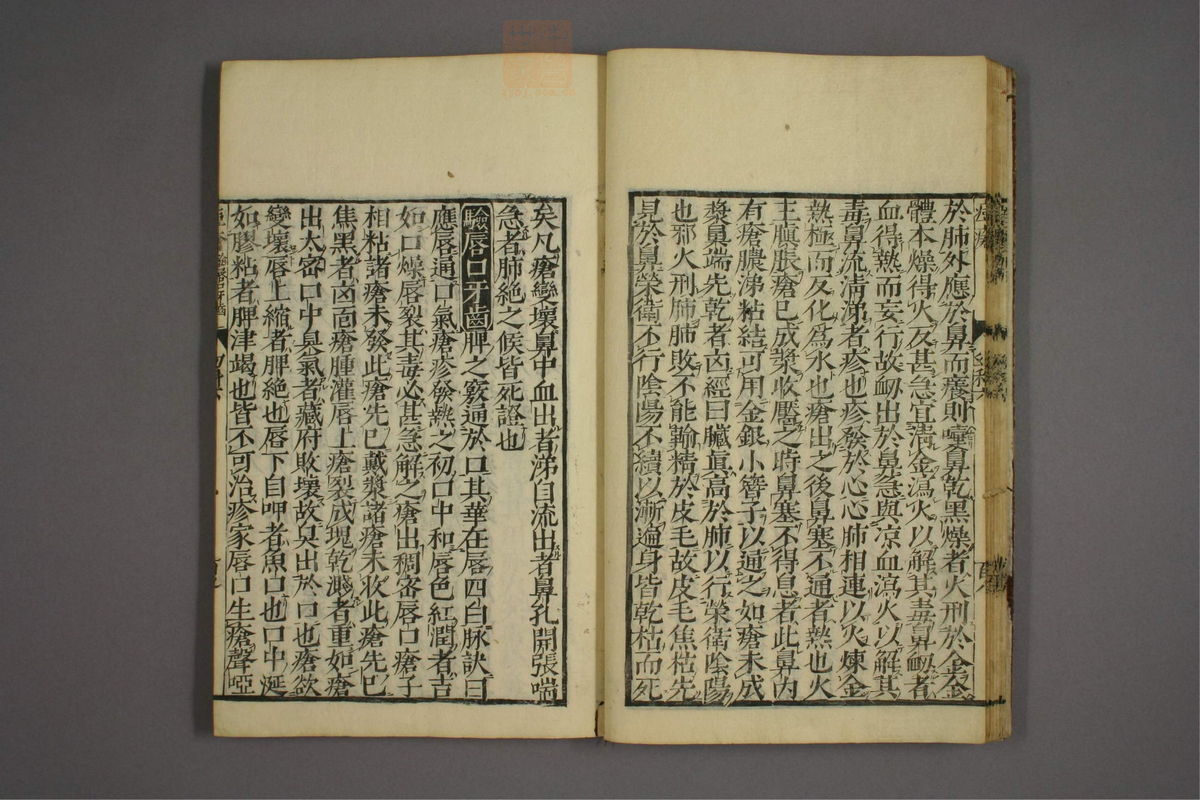 於肺外應於鼻而癢則嚏鼻乾黑燥者火刑於金金
體本燥得火反甚急宜清金瀉火以解其毒鼻衂者
血得熱而妄行故衂出於鼻急與凉血瀉火以解其
毒鼻流清涕者疹也疹發於心心肺相連以火煉金
熱極而反化爲水也瘡出之後鼻塞不通者熱也火
主䐜脹瘡已成漿收靨之時鼻塞不得息者此鼻内
有瘡膿涕粘結可用金銀小簪子以通之如瘡未成
漿鼻端先乾者凶經曰臟眞高於肺以行榮衛陰陽
也邪火刑肺肺敗不能輸精於皮毛故皮毛焦枯先
見於鼻榮衛不行陰陽不續以漸遍身皆乾枯而死
矣凡瘡變壞鼻中血出者涕自流出者鼻孔開張喘
急者肺絶之候皆死證也
驗唇口牙齒 脾之竅通於口其華在唇四白脉訣曰
應唇通口氣瘡疹發熱之初口中和唇色紅潤者吉
如口燥唇裂其毒必甚急解之瘡出稠密唇口瘡子
相粘諸瘡未發此瘡先已戴漿諸瘡未收此瘡先已
焦黑者凶面瘡腫灌唇上瘡裂成塊乾濺者重如瘡
出太密口中臭氣者藏府敗壞故臭出於口也瘡欲
變壞唇上縮者脾絶也唇下自呷者魚口也口中涎
如膠粘者脾津竭也皆不可治疹家唇口生瘡聲啞